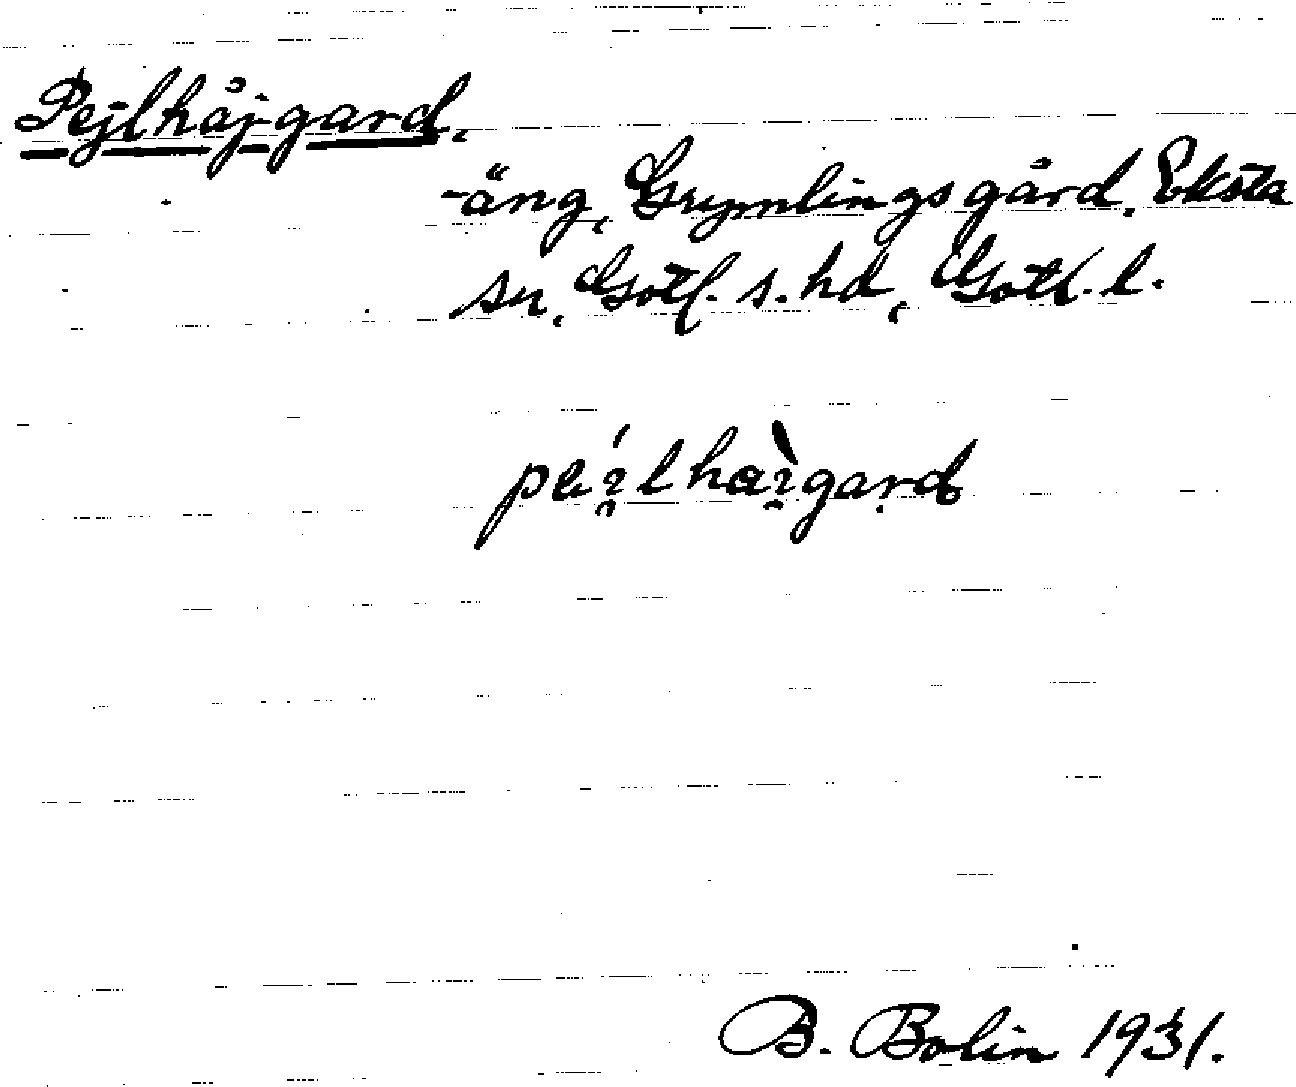 Pejlhåjgard.
-äng, Grymlingsgård, Eksta
sn, Gotl. s. hd, Gotl. l.
peí̯lhaì̯gard
B. Bolin 1931.